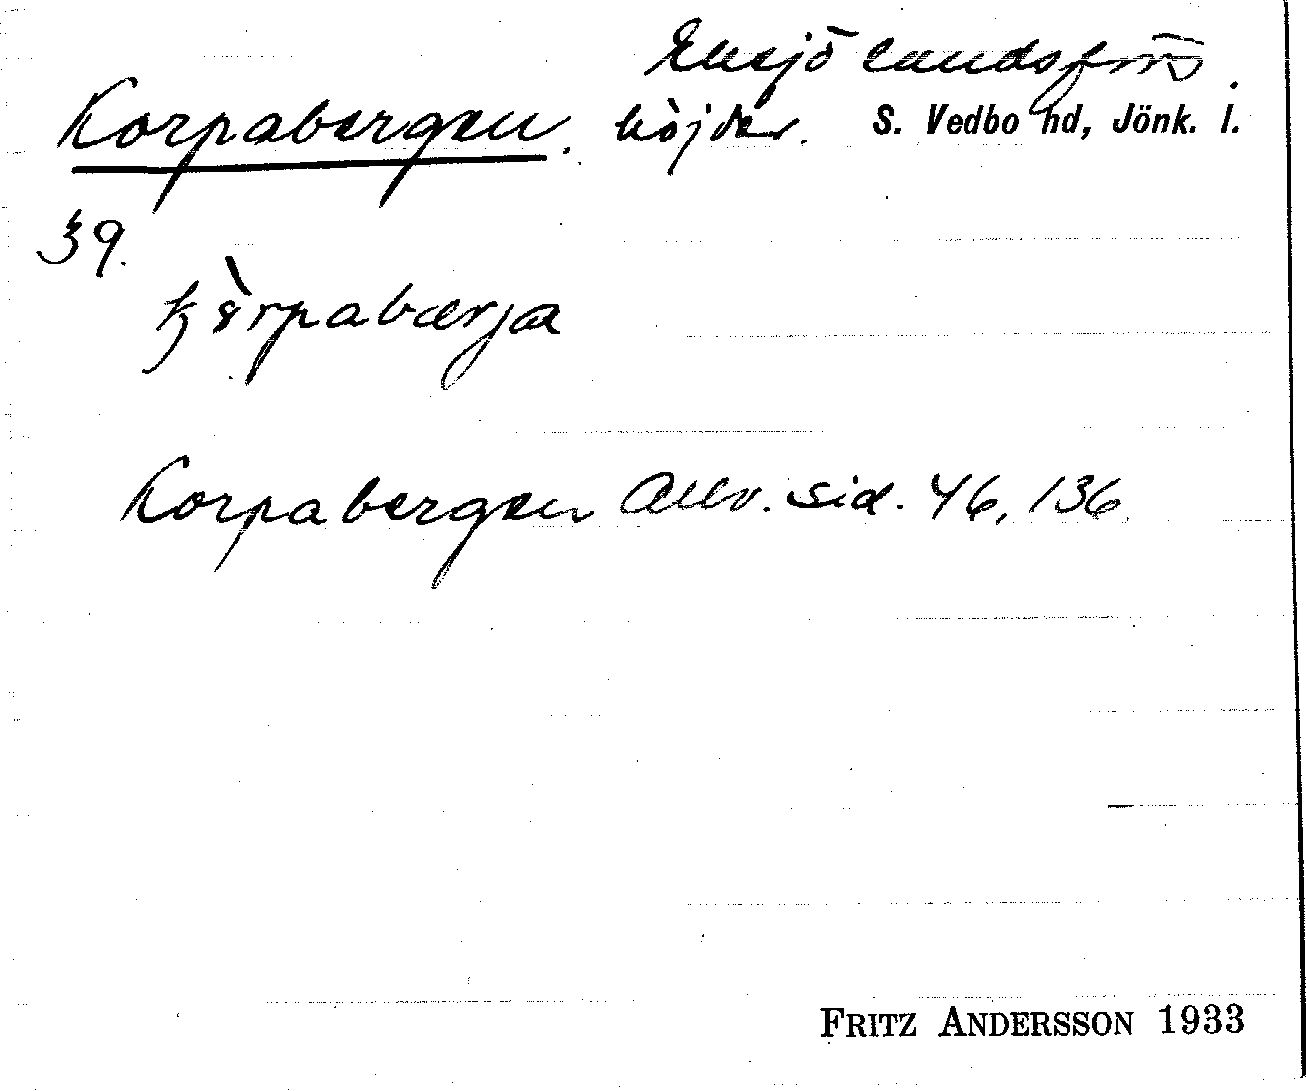 Eksjö landsförs.
Korpabergen. höjder. S. Vedbo hd, Jönk. l.
39.
Korpabergen Allv. sid. 46, 136.
FRITZ ANDERSSON 1933